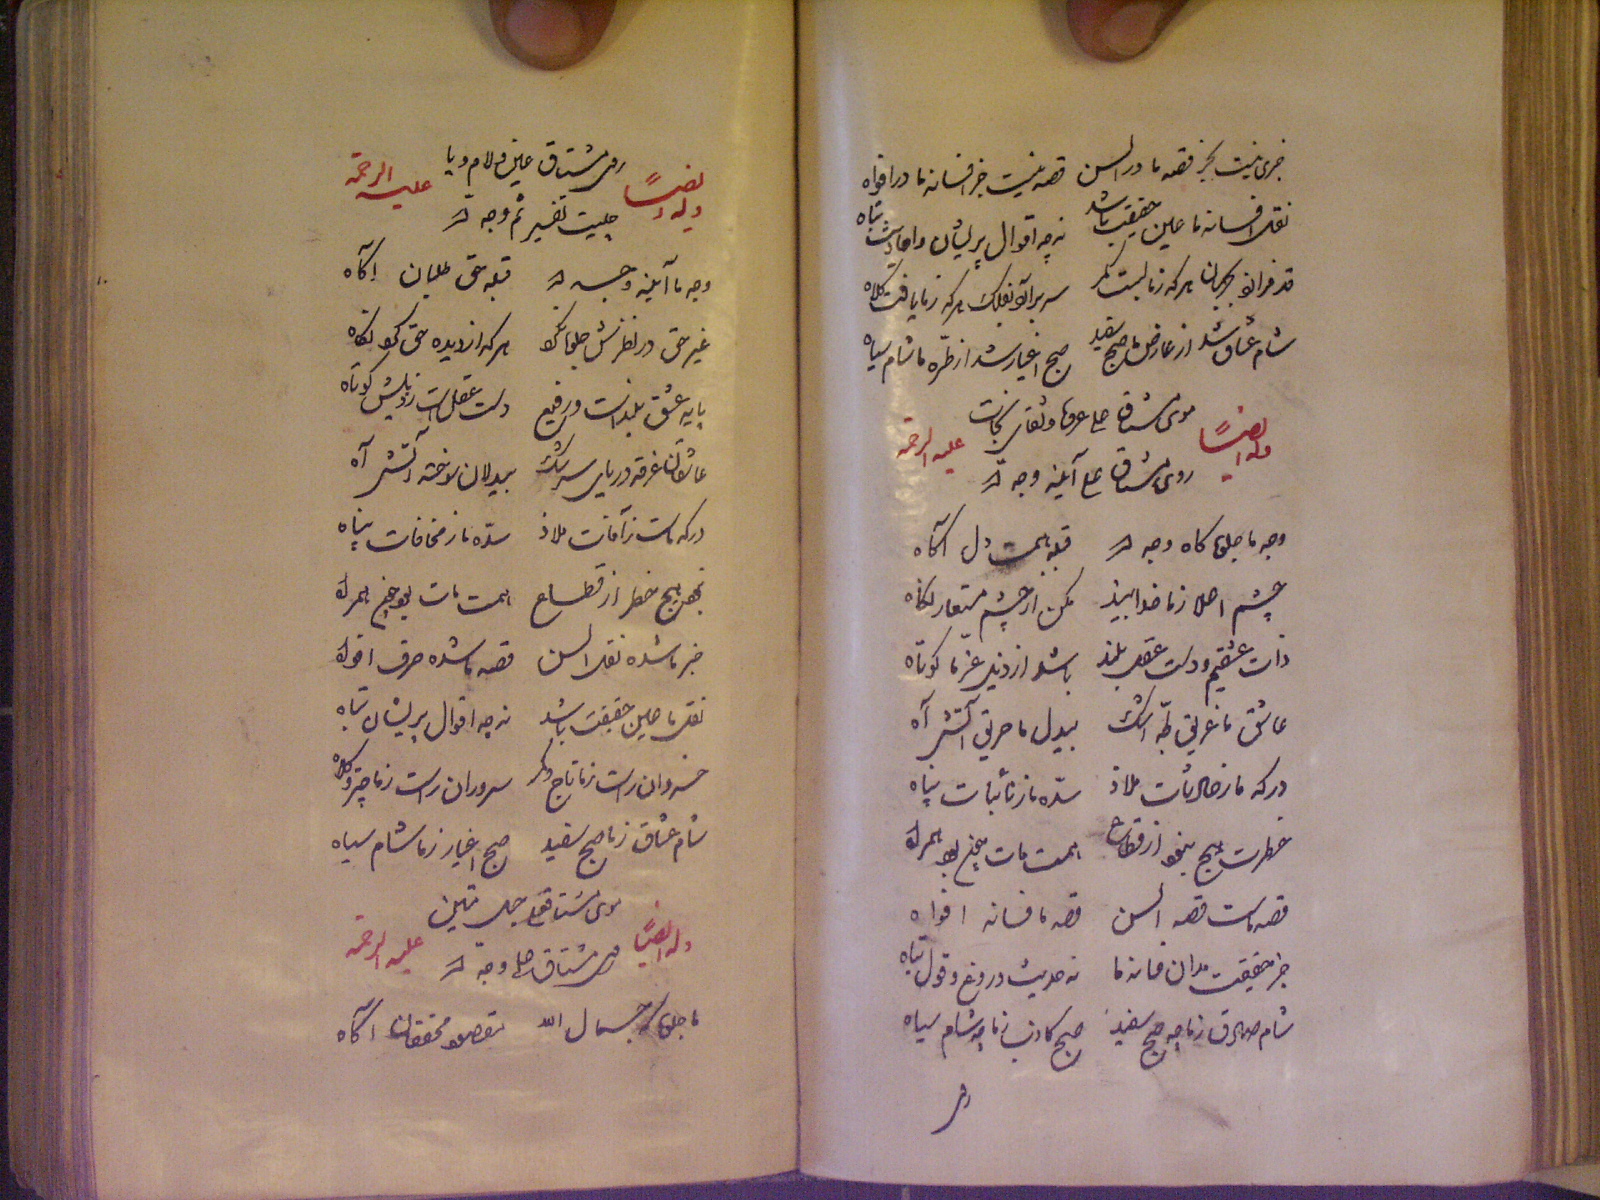 خبری نیست بجز قصه ما در السن قصه نیست جز افسانه ما در افواه
نقل افسانه ما عین حقیقت باشد نه چه اقوال پریشان و احادیث تباه
هر که ز ما بست کمر سر برآرد بفلک هر که ز ما یافت کلاه
شام عشاق شد از عارض ما صبح سفید صبح اغیار شد از طره ما شام سیاه
وله ایضاً
علیه الرحمة
روی مشتاق علی آینه وجه الله
وجه ما جلوه گاه وجه الله قبله همت دل آگاه
چشم اصلا ز ما خدا بیند مکن از چشم مستعار نگاه
ذات عشقیم و دست عقل بلند باشد از دیدن عز ما کوتاه
عاشق ما غریق لجه اشک بیدل ما حریق آتش آه
درگه ما ز حادثات ملاذ سده ما ز نائبات پناه
خطرت هیچ نبود از قطاع همت مات چنع بود همراه
قصه ماست قصه السن قصه ما فسانه افواه
جز حقیقت مدان فسانه ما نه حدیث دروغ و قول تباه
شام صادق ز ما چه صبح سفید صبح کاذب ز ما چه شام سیاه
روی
روی مشتاق عین ولام ویا
وله ایضاً
علیه الرحمة
چیست تفسیر ثم وجه الله
وجه ما آینه وجه الله قبله حق طلبان آگاه
غیر حق در نظرش جلوه نکرد هر که از دیده حق کرد نگاه
پایه عشق بلند است و رفیع دست عقل است ز ذیلش کوتاه
عاشقان غرقه دریای سرشک بیدلان سوخته آتش آه
درگه ماست ز آفات ملاذ سده ما ز مخافات پناه
هیچ خطر از قطاع همت مات بود چنع همراه
خبر ما شده نقل السن قصه ما شده حرف افواه
نقل ما عین حقیقت باشد نه چه اقوال پریشان تباه
خسروان راست ز ما تاج و کمر سروران راست ز ما چتر و کلاه
شام عشاق ز ما صبح سفید صبح اغیار ز ما شام سیاه
وله ایضاً
علیه الرحمة
روی مشتاق علی وجه الله
ما جلوه گر جمال الله مقصود محققان آگاه